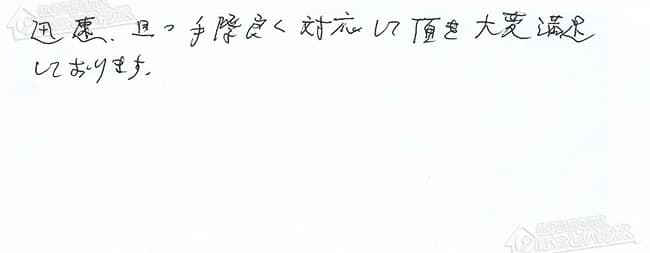 迅速、且つ手際良く対応して頂き大変満足
しております。